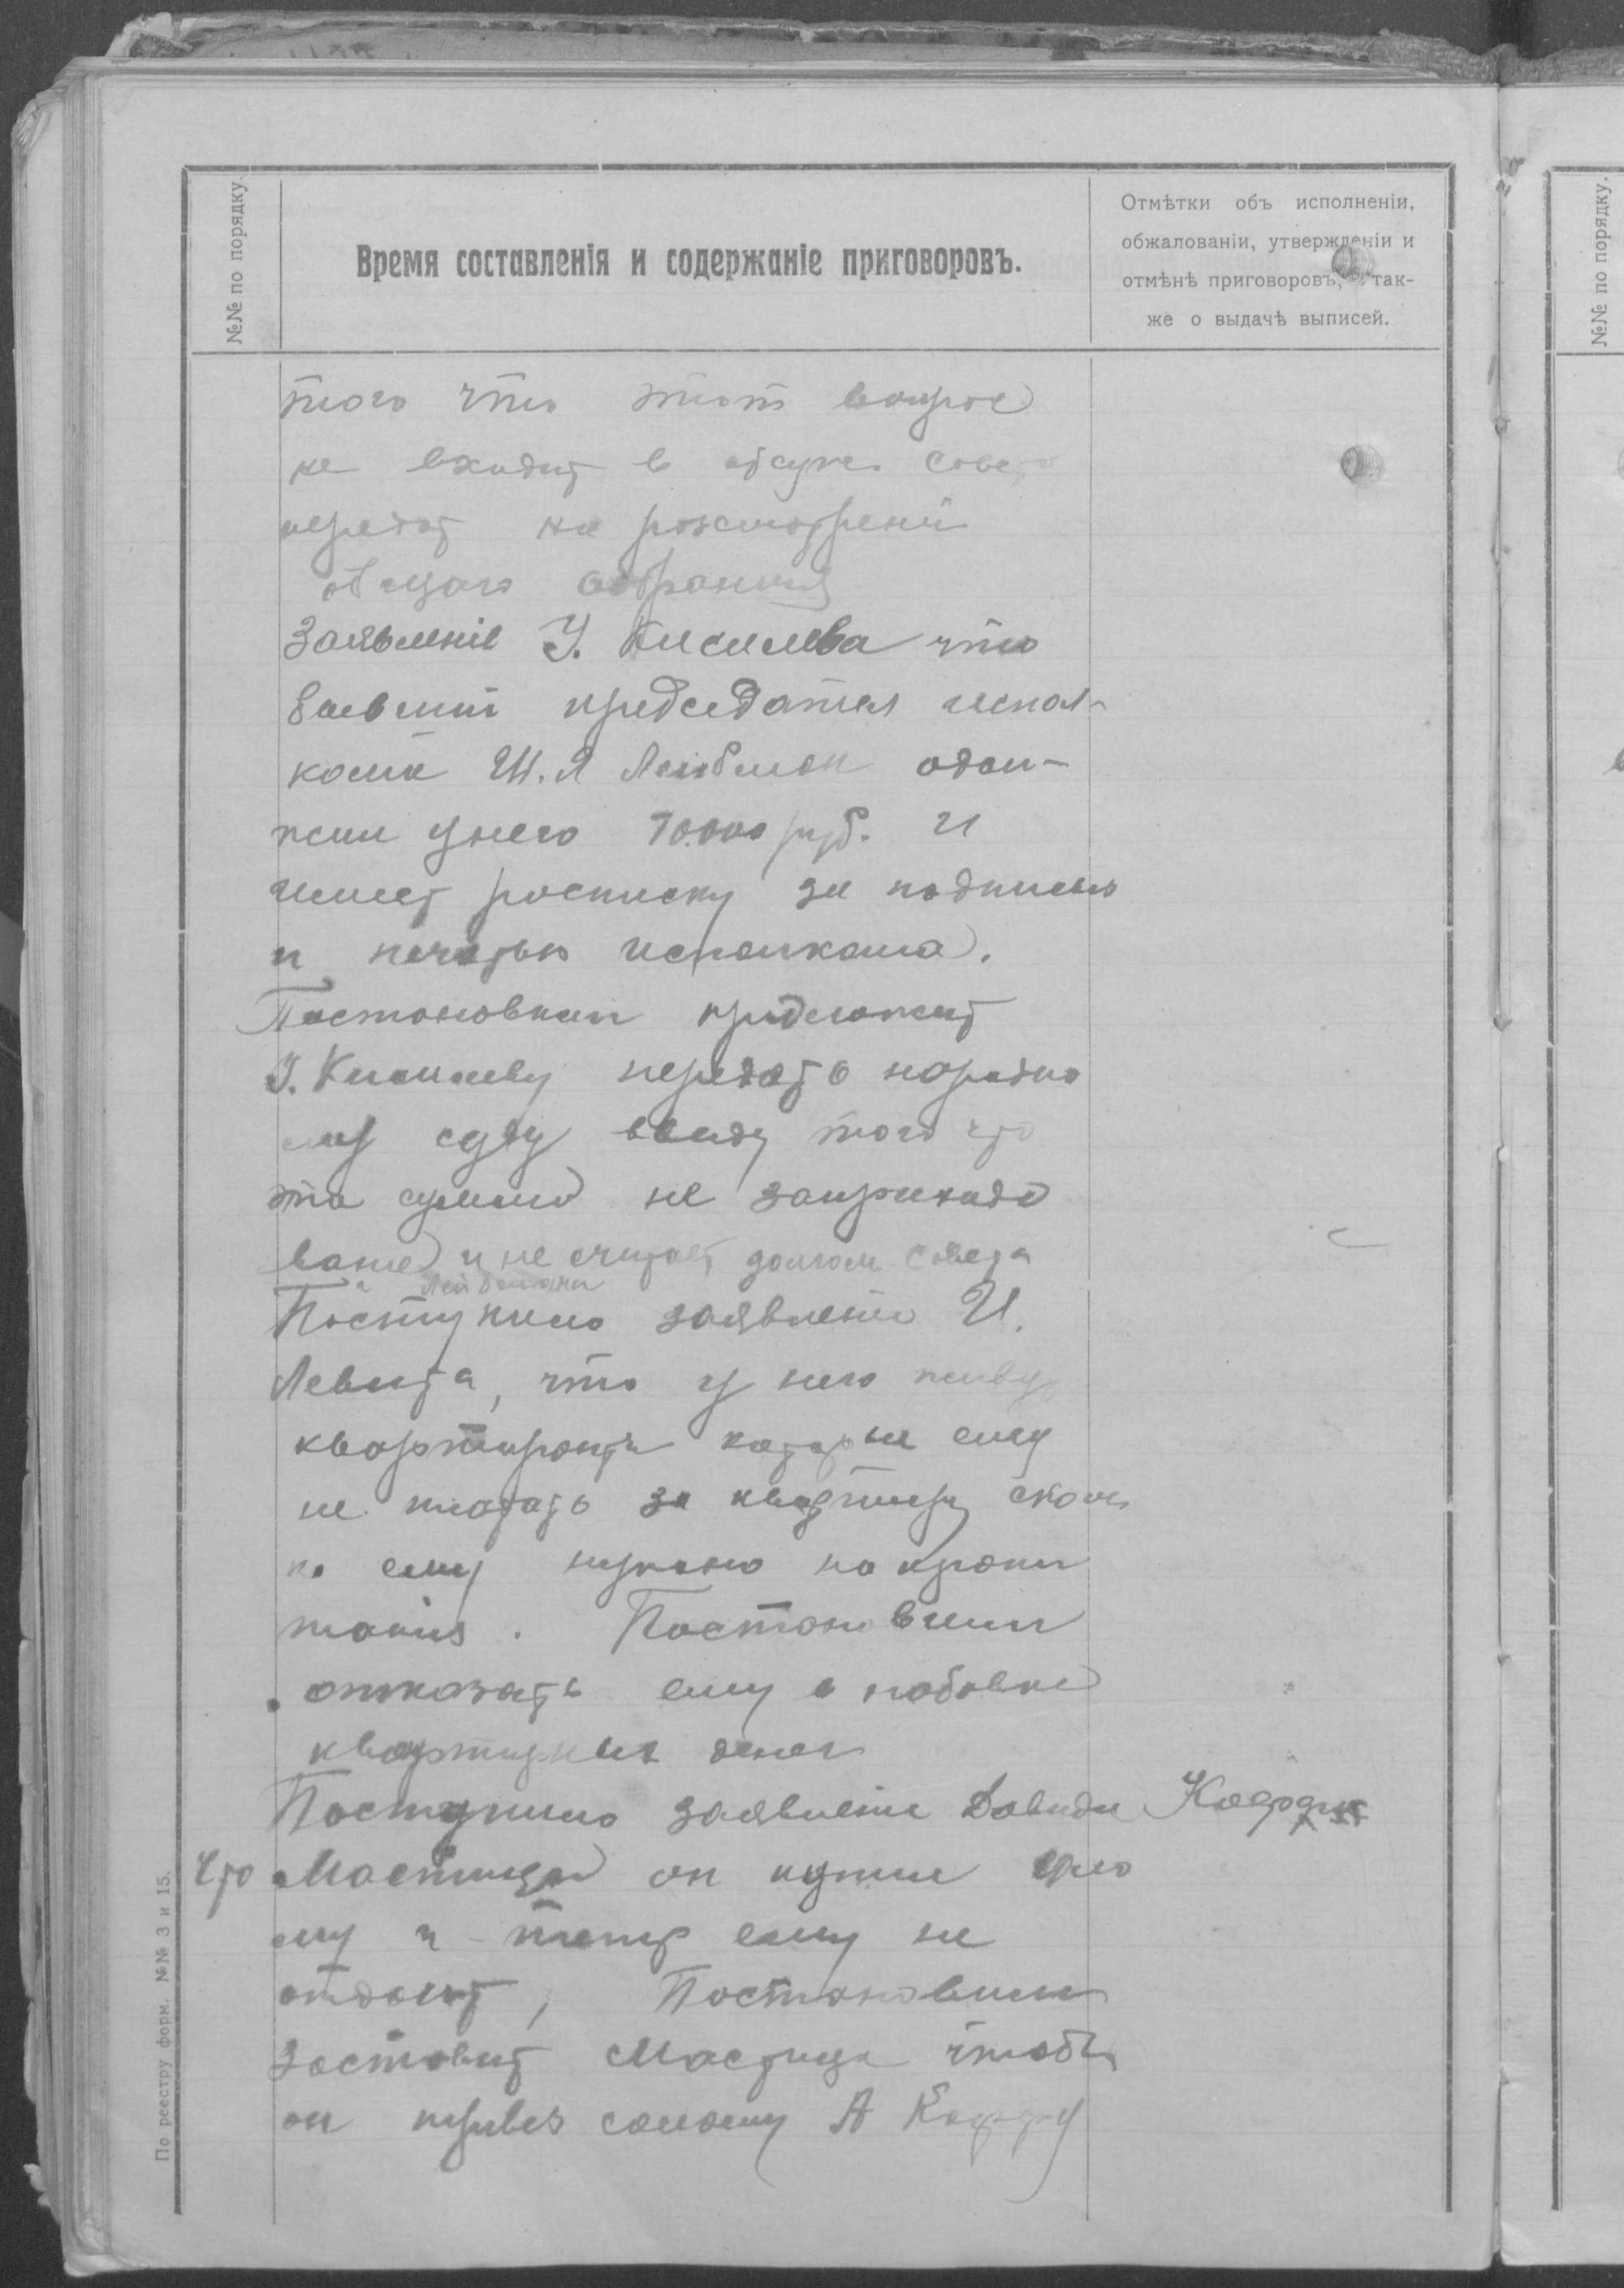 №№ по порядку.
Время составленія и содержаніе приговоровъ.
Отмѣтки объ исполненіи,
обжалованіи, утвержденіи и
отмѣнѣ приговоровъ, а так-
же о выдачѣ выписей.
№№ по порядку.
того что этот вопрос
не входит в Совета
передат на
общаго собрания
Заявленіе У. Киселева что
бывший председател испол-
кома Ш. Л Лейбман одол-
жил у него 70.000 руб. и
имеет росписку за подписью
и печатью исполкома.
Постановили предложит
У. Киселеву передать народно
му суду ввиду того что
эта сумма не заприходо
вана и не считает долгом Совета
а Лейбмана
Поступило заявление И.
Левита, что у него живут
квартиранты которые ему
не платать за квартиру сколь
ко ему нужно на пропи
тание. Постановили
отказать ему в
квартирных денег
Поступило заявление Давида Каффки
что Мастицой он купил соло
му и тепер ему не
отдают, Постановили
заставит Мастица чтобы
он привез солому А Каффу
По реестру форм. №№ 3 и 15.